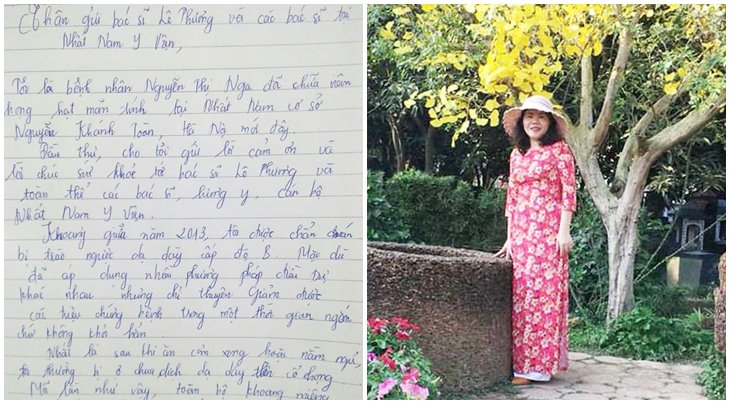 Thân gửi bác sĩ Lê Phương và các bác sĩ tại
Nhất Nam Y Viện,
Tôi là bệnh nhân Nguyễn Thị Nga đã chữa viêm
họng hạt mãn tính tại Nhất Nam cơ sở
Nguyễn Khánh Toàn, Hà Nội mới đây.
Đầu thư, cho tôi gửi lời cảm ơn và
lời chúc sức khoẻ tới bác sĩ Lê Phương và
toàn thể các bác sĩ, lương y, cán bộ
Nhất Nam Y Viện.
Khoảng giữa năm 2013, tôi được chẩn đoán
bị trào ngược dạ dày cấp độ B. Mặc dù
đã áp dụng nhiều phương pháp điều trị
khác nhau nhưng chỉ thuyên giảm được
các triệu chứng bệnh trong một thời gian ngắn
chứ không khỏi hẳn.
Nhất là sau khi ăn cơm xong hoặc nằm ngủ,
tôi thường bị ợ chua, dịch dạ dày lên cổ họng
Mỗi lần như vậy, toàn bộ khoang miệng